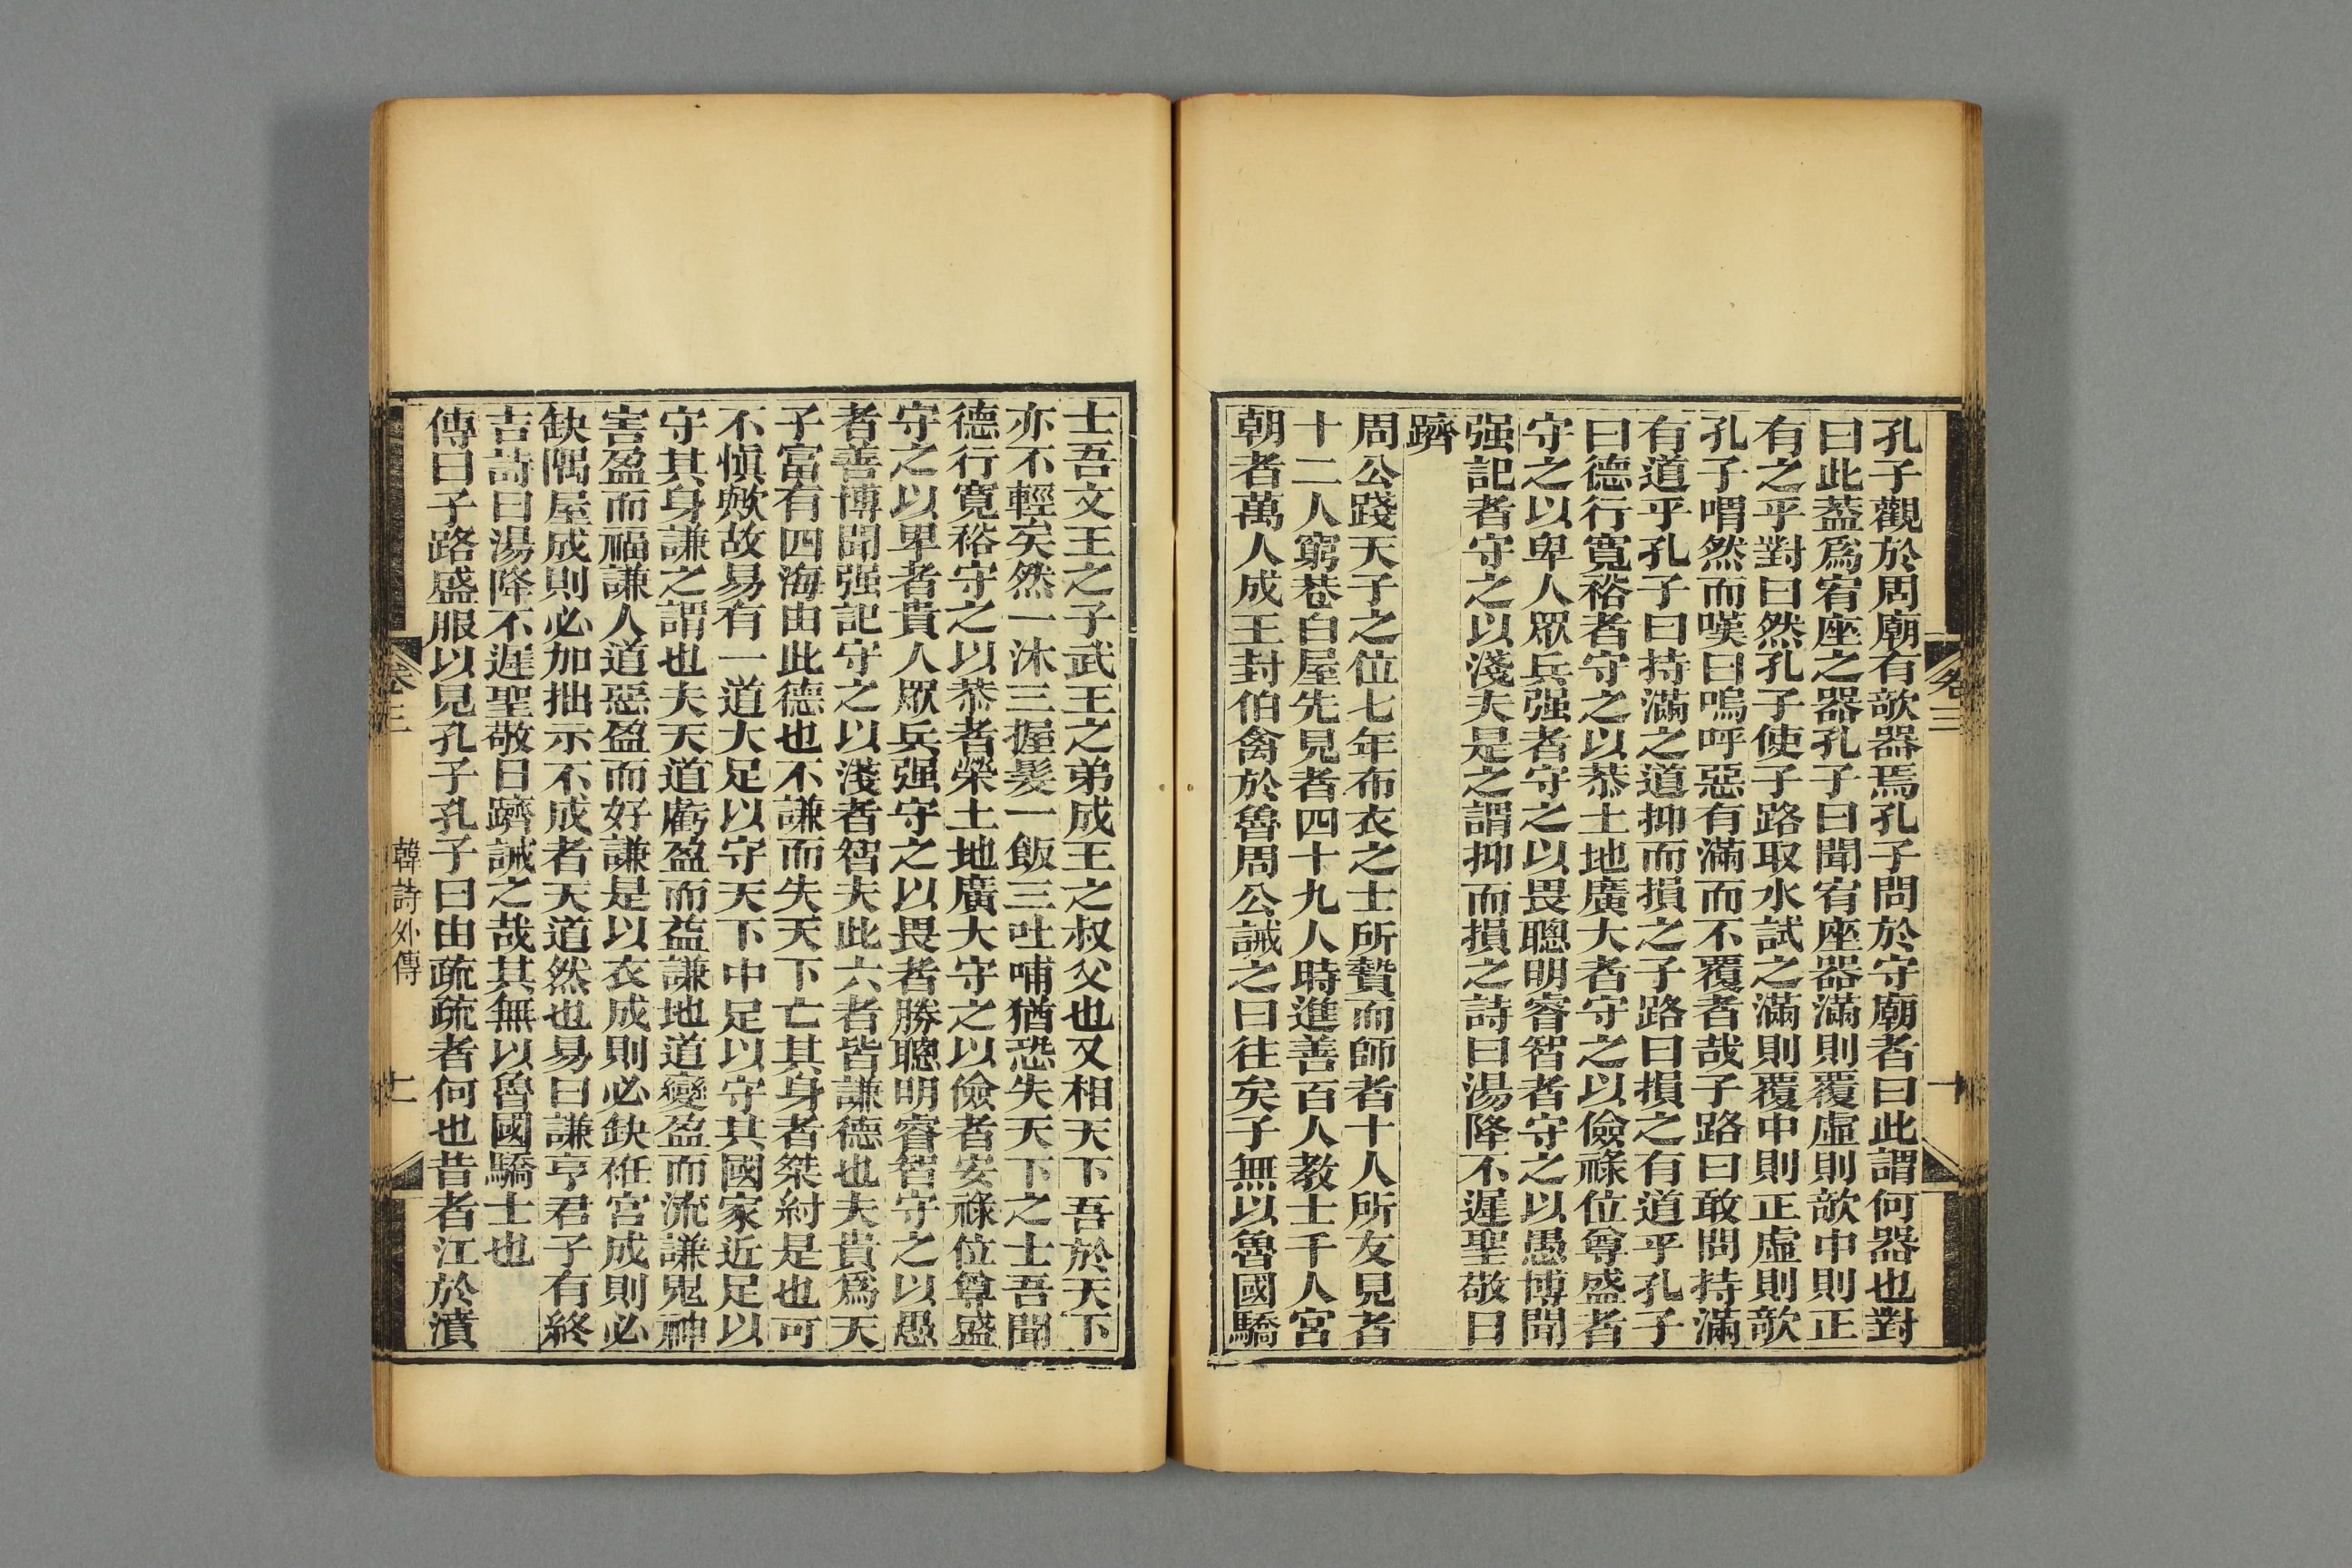 孔子觀於周廟有欹器焉孔子問於守廟者曰此謂何器也對
曰此蓋爲宥座之器孔子曰聞宥座器滿則覆虛則欹中則正
有之乎對曰然孔子使子路取水試之滿則覆中則正虛則欹
孔子喟然而嘆曰嗚呼惡有滿而不覆者哉子路曰敢問持滿
有道乎孔子曰持滿之道抑而損之子路曰損之有道乎孔子
曰德行寬裕者守之以恭土地廣大者守之以儉祿位尊盛者
守之以卑人眾兵强者守之以畏聰明睿智者守之以愚博聞
强記者守之以淺夫是之謂抑而損之詩曰湯降不遲聖敬日
躋
周公踐天子之位七年布衣之士所贄而師者十人所友見者
十二人窮巷白屋先見者四十九人時進善百人教士千人宮
朝者萬人成王封伯禽於魯周公誡之曰往矣子無以魯國驕
卷三
十
士吾文王之子武王之弟成王之叔父也又相天下吾於天下
亦不輕矣然一沐三握髮一飯三吐哺猶恐失天下之士吾聞
德行寬裕守之以恭者榮土地廣大守之以儉者安祿位尊盛
守之以卑者貴人眾兵强守之以畏者勝聰明睿智守之以愚
者善博聞强記守之以淺者智夫此六者皆謙德也夫貴爲天
子富有四海由此德也不謙而失天下亡其身者桀紂是也可
不慎歟故易有一道大足以守天下中足以守其國家近足以
守其身謙之謂也夫天道虧盈而益謙地道變盈而流謙鬼神
害盈而福謙人道惡盈而好謙是以衣成則必缺袵宮成則必
缺隅屋成則必加拙示不成者天道然也易曰謙亨君子有終
吉詩曰湯降不遲聖敬日躋誡之哉其無以魯國驕士也
傳曰子路盛服以見孔子孔子曰由疏疏者何也昔者江於濆
卷三
韓詩外傳
十一